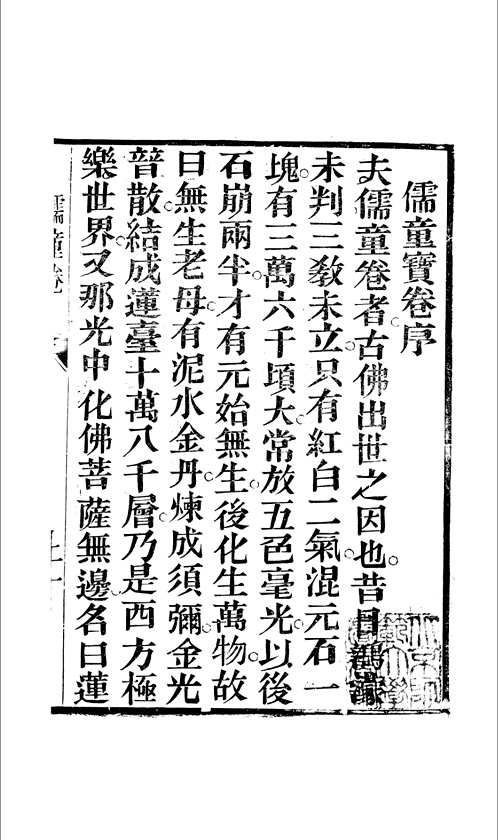 儒童寶卷序
夫儒童卷者。古佛出世之因也。昔日
未判三敎未立。只有紅白二氣。混元石一
塊。有三萬六千頃大。常放五色毫光。以後
石崩兩半。才有元始無生。後化生萬物。故
曰無生老母。有泥水金丹。煉成須彌。金光
普散。結成蓮臺十萬八千層。乃是西方極
樂世界。又那光中化佛菩薩無邊。名曰蓮
儒童卷